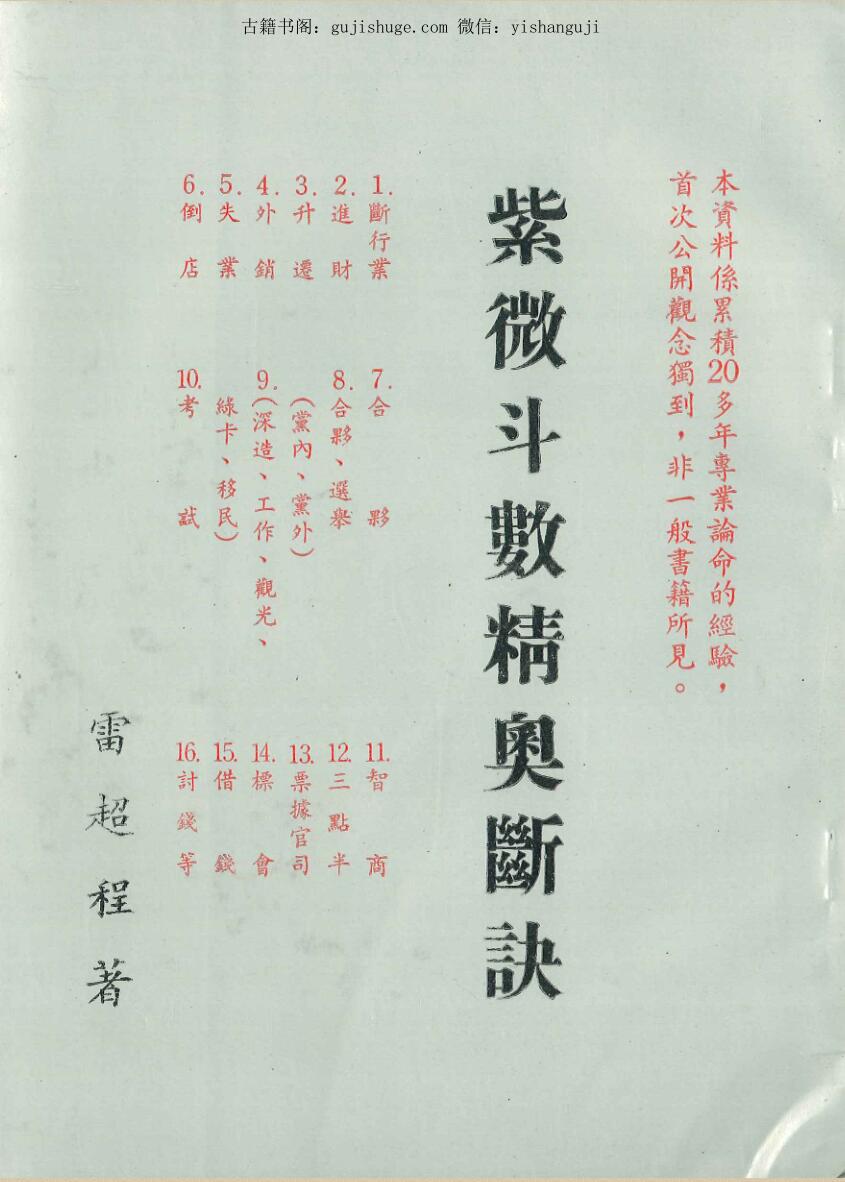 古籍书阁：gujishuge.com 微信：yishanguji
本資料係累積20多年專業論命的經驗，
首次公開觀念獨到，非一般書籍所見。
紫微斗數精奧斷訣
1.斷行業
2.進財
3.升遷
4.外銷
5.失業
6.倒店
7.合夥
8.合夥、選舉
(黨內、黨外)
9.(深造、工作、觀光、
綠卡、移民)
10.考試
11.智商
12.三點半
13.票據官司
14.標會
15.借錢
16.討錢等
雷超程著